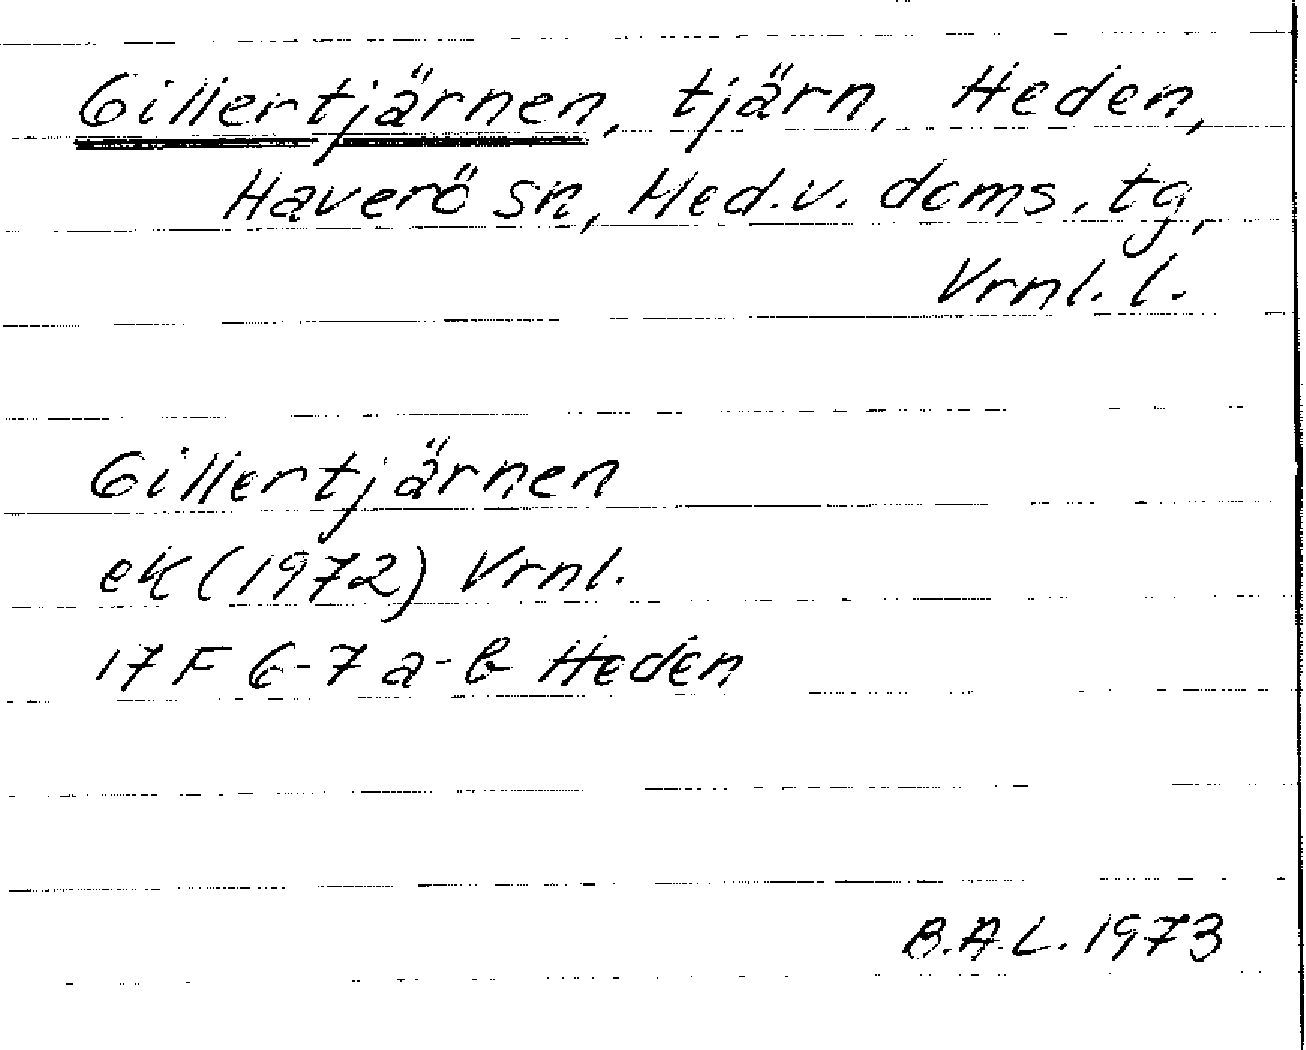 Gillertjärnen, tjärn, Heden,
Haverö sn, Med.v. doms. tg,
Vrnl. l.
Gillertjärnen
ek (1972) Vrnl.
17 F 6-7 a-b Heden
B.A.L. 1973